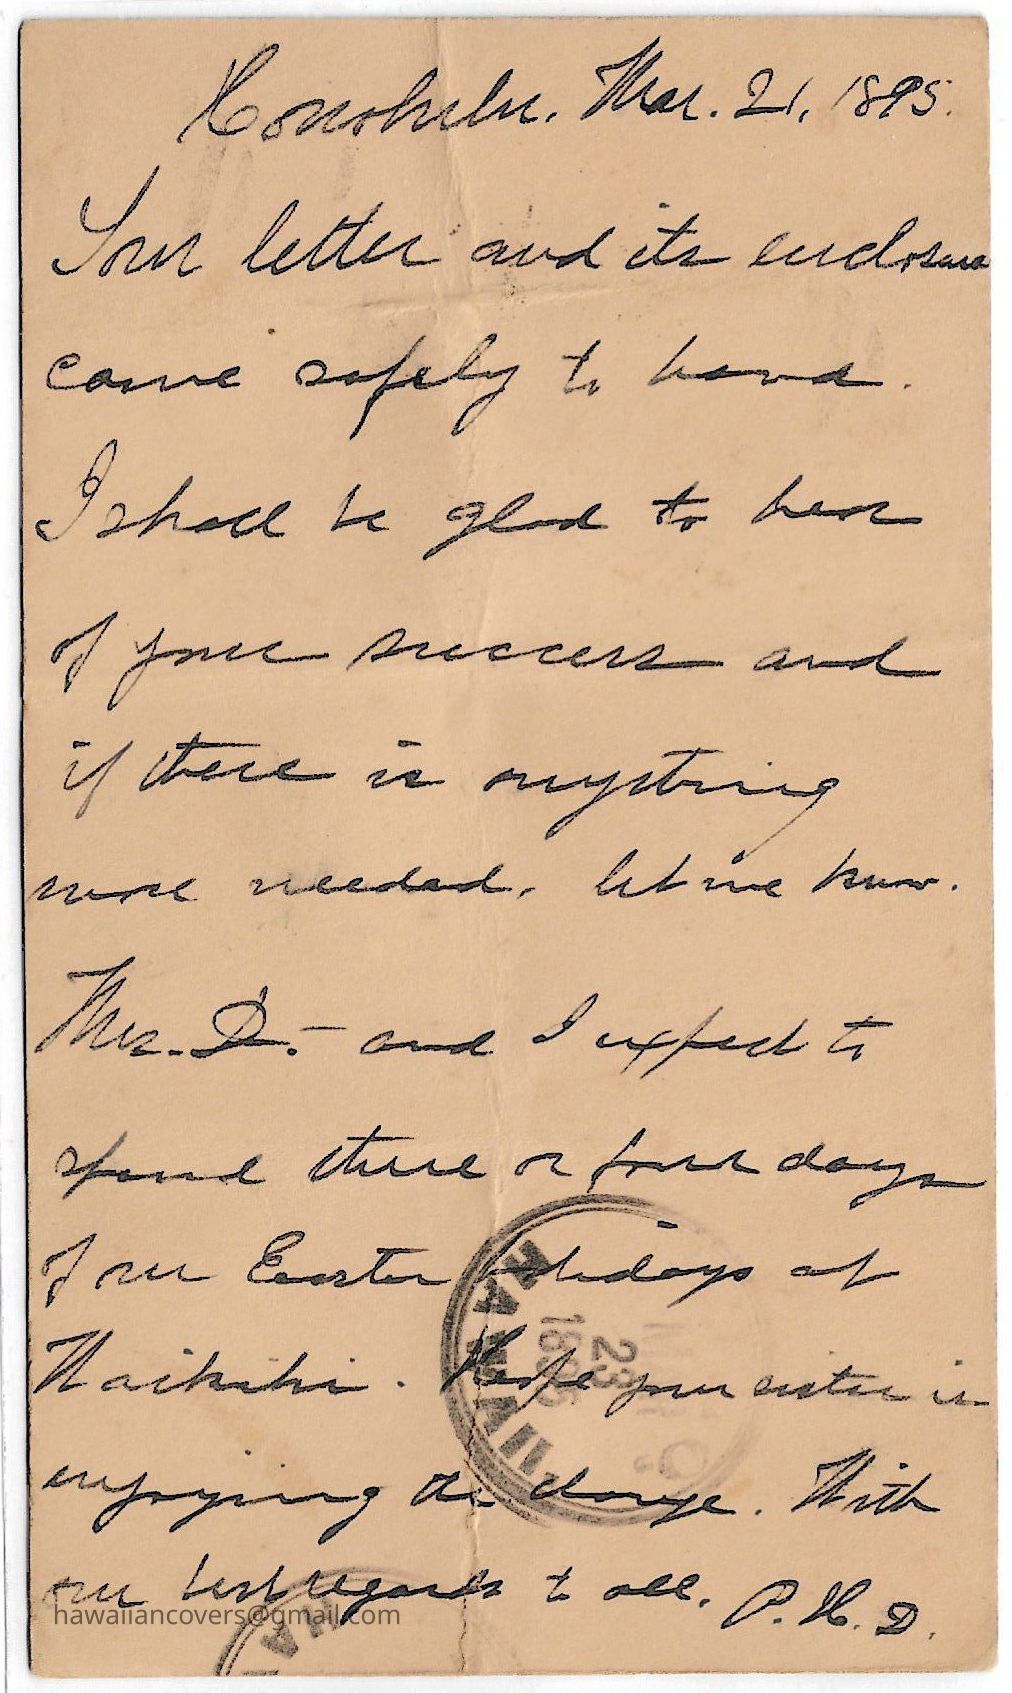 Honolulu. Mar. 21, 1895.
Your letter and its enclosure
came safely to hand.
I shall be glad to hear
of your success and
if there is anything
more needed, let me know.
Mrs. D.– and I expect to
spend three or four days
of our Easter holidays at
Waikiki. Hope your sister is
enjoying the change. With
our best regards to all. P. H. D.
HAWAII
23
1895
HA
hawaiiancovers@gmail.com